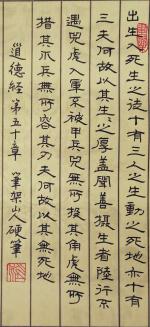 出生入死生之徒十有三人之生動之死地亦十有
三夫何故以其生〻之厚蓋聞善攝生者陸行不
遇兕虎入軍不被甲兵兕無所投其角虎無所
措其爪兵無所容其刃夫何故以其無死地
道德经第五十章 筆架山人硬筆